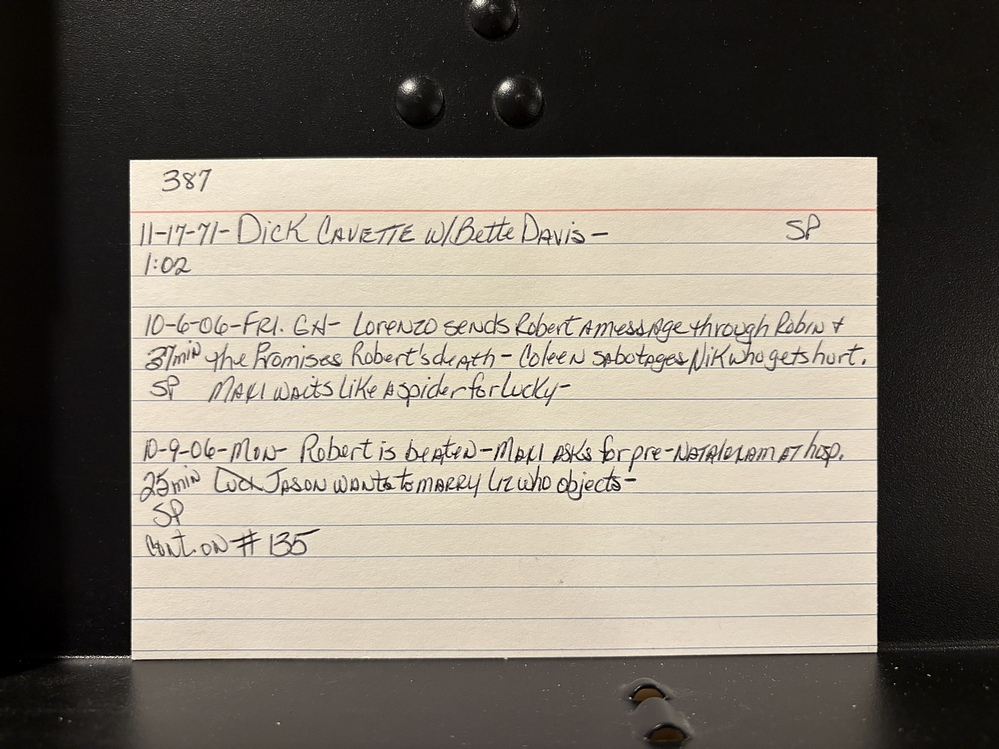 387
11-17-71- Dick Cavette w/ Bette Davis - SP
1:02
10-6-06-Fri. GH- Lorenzo sends Robert a message through Robin &
37min the Promises Robert's death - Coleen sabotages Nik who gets hurt.
SP Maxi waits like a spider for Lucky-
10-9-06-Mon- Robert is beaten - Maxi asks for pre-natal exam at hosp.
25min Jason wants to marry Liz who objects-
SP
Cont. on # 135